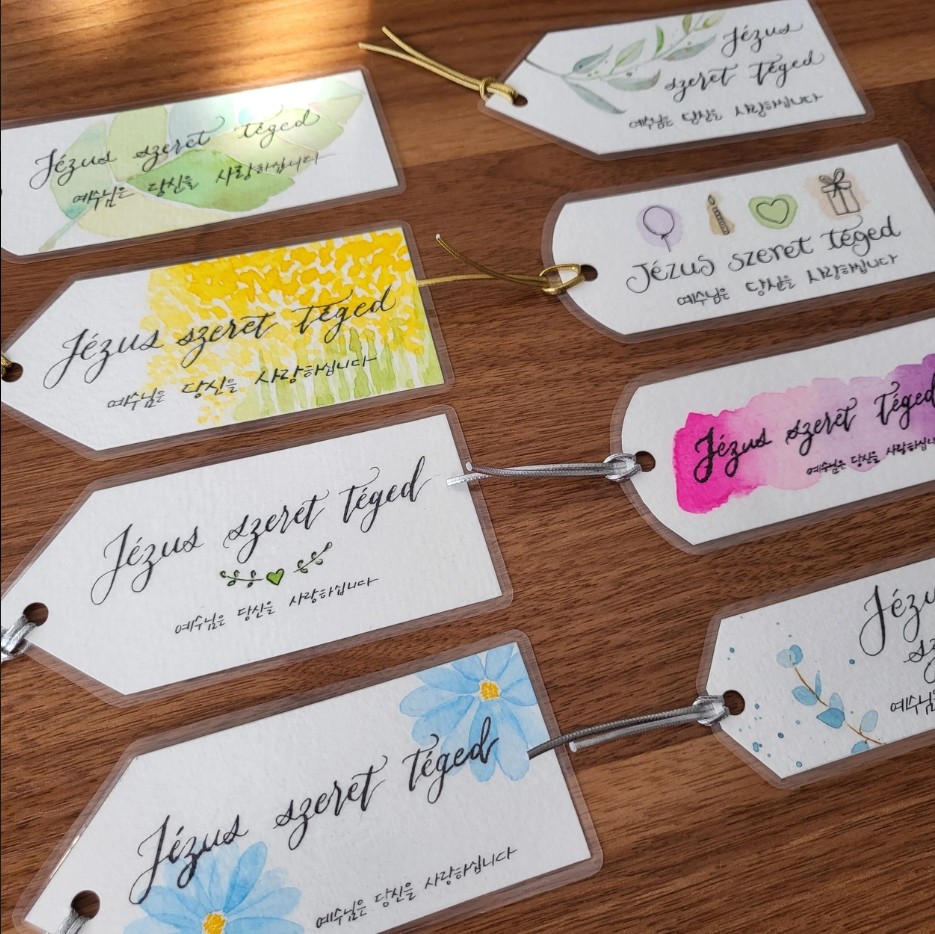 Jézus szeret téged
예수님은 당신을 사랑하십니다
Jézus szeret téged
예수님은 당신을 사랑하십니다
Jézus szeret téged
예수님은 당신을 사랑하십니다
Jézus szeret téged
예수님은 당신을 사랑하십니다
Jézus
szeret téged
예수님은 당신을 사랑하십니다
Jézus szeret téged
예수님은 당신을 사랑하십니다
Jézus szeret téged
예수님은 당신을 사랑하십니
Jézu
sz
예수님은